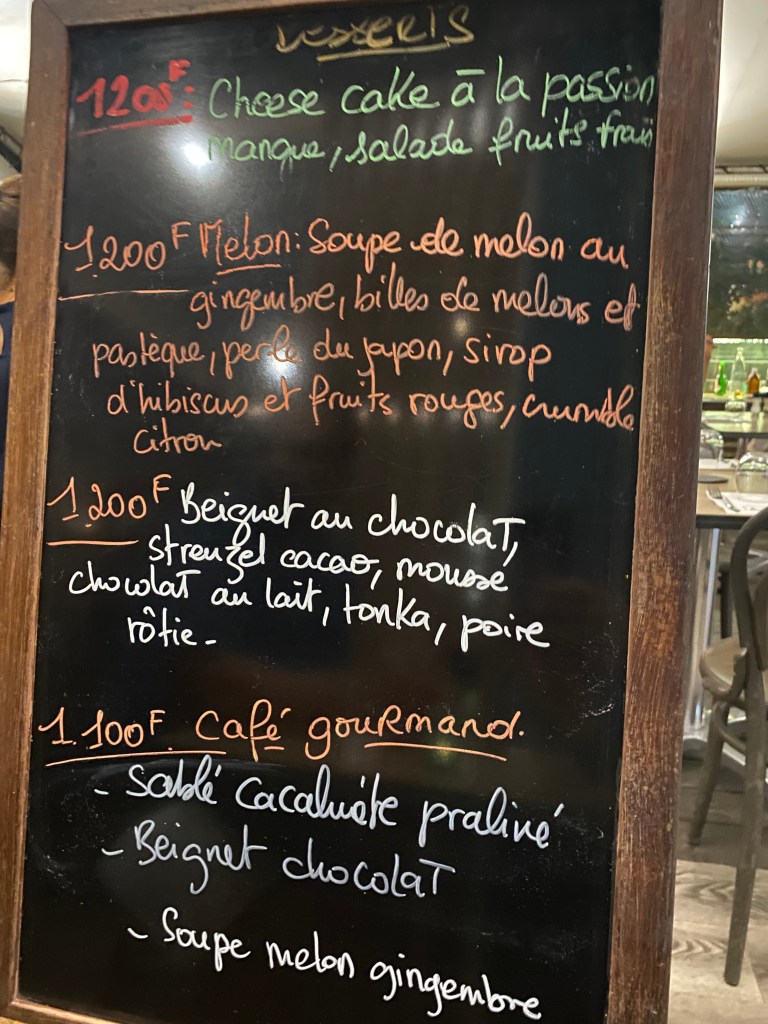 DESSERTS
1200F: Cheese cake à la passion
mangue, salade fruits frais
1.200F Melon: Soupe de melon au
gingembre, billes de melons et
pastèque, perle du japon, sirop
d'hibiscus et fruits rouges, crumble
citron
1.200F Beignet au chocolat,
streuzel cacao, mousse
chocolat au lait, tonka, poire
rôtie -
1.100F. Café gourmand.
- Sablé cacahuète praliné
- Beignet chocolat
- Soupe melon gingembre